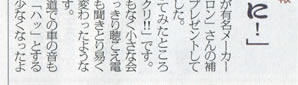 に！」
が有名メーカー
ロン」さんの補
プレゼントして
した。
てみたところ
クリ!!」です。
もなく小さな会
っきり聴こえ電
も聞きとり易く
変わったような
道での車の音も
「ハッ」とする
少なくなったよ